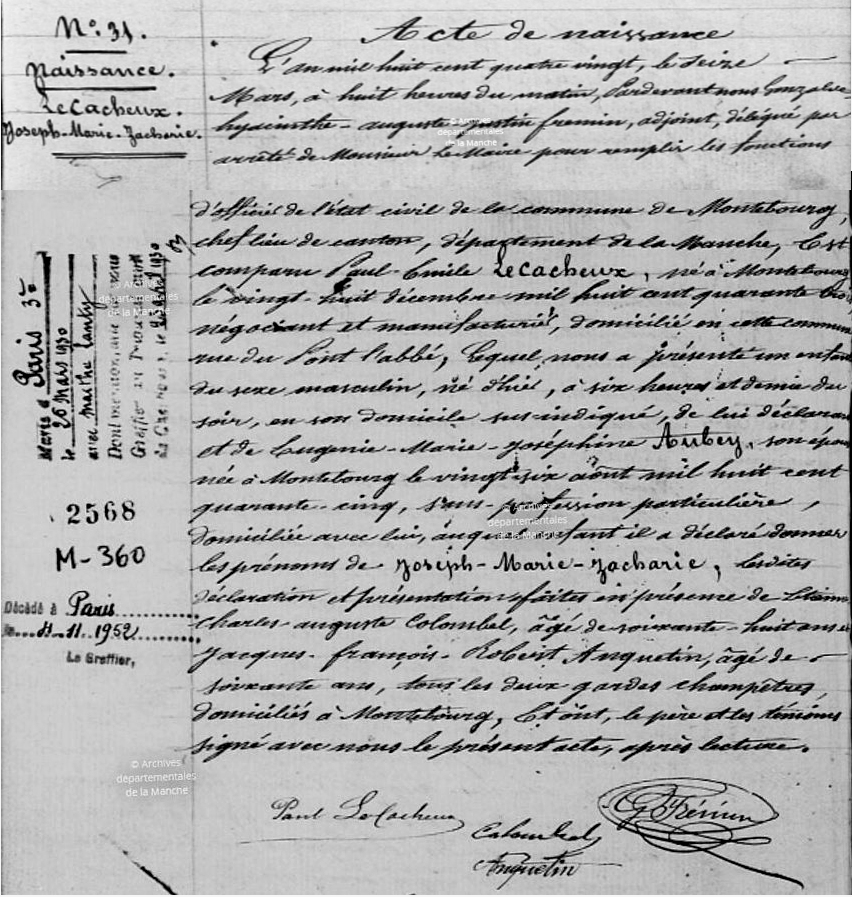 N° 31.
Naissance.
LeCacheux.
Joseph-Marie-Zacharie.
Acte de naissance
L'an mil huit cent quatre vingt, le seize
Mars, à huit heures du matin, Pardevant nous Gonzalve-
hyacinthe-auguste fremin, adjoint, délégué par
arrêté de Monsieur Le Maire pour remplir les fonctions
d'officier de l'état civil de la commune de Montebourg,
chef lieu de canton, département de la Manche, Est
comparu Paul-Emile LeCacheux, né à Montebourg
le vingt-huit décembre mil huit cent quarante trois
négociant et manufacturier, domicilié en cette commune
rue du Pont l'abbé, Lequel nous a présenté un enfant
du sexe masculin, né d'hier, à six heures et demie du
soir, en son domicile sus-indiqué, de lui déclarant
et de Eugenie-Marie-Joséphine Aubey, son épouse
née à Montebourg le vingt six août mil huit cent
quarante-cinq, sans profession particulière,
domiciliée avec lui, auquel enfant il a déclaré donner
les prénoms de Joseph-Marie-Zacharie, lesdites
déclaration et présentation faites en présence de
charles-auguste Colombel, âgé de soixante-huit ans et
Jacques-françois-Robert Anquetin, âgé de
soixante ans, tous les deux gardes champêtres,
domiciliés à Montebourg, Et ont, le père et les témoins
signé avec nous le présent acte, après lecture.
Marié à Paris 3e
le 26 Mars 1930
avec Marthe
2568
M-360
Décédé à Paris
le 11.1952
Le Greffier,
Paul LeCacheux
Colombel
G Frémin
Anquetin
© Archives
départementales
de la Manche
© Archives
départementales
de la Manche
© Archives
départementales
de la Manche
© Archives
départementales
de la Manche